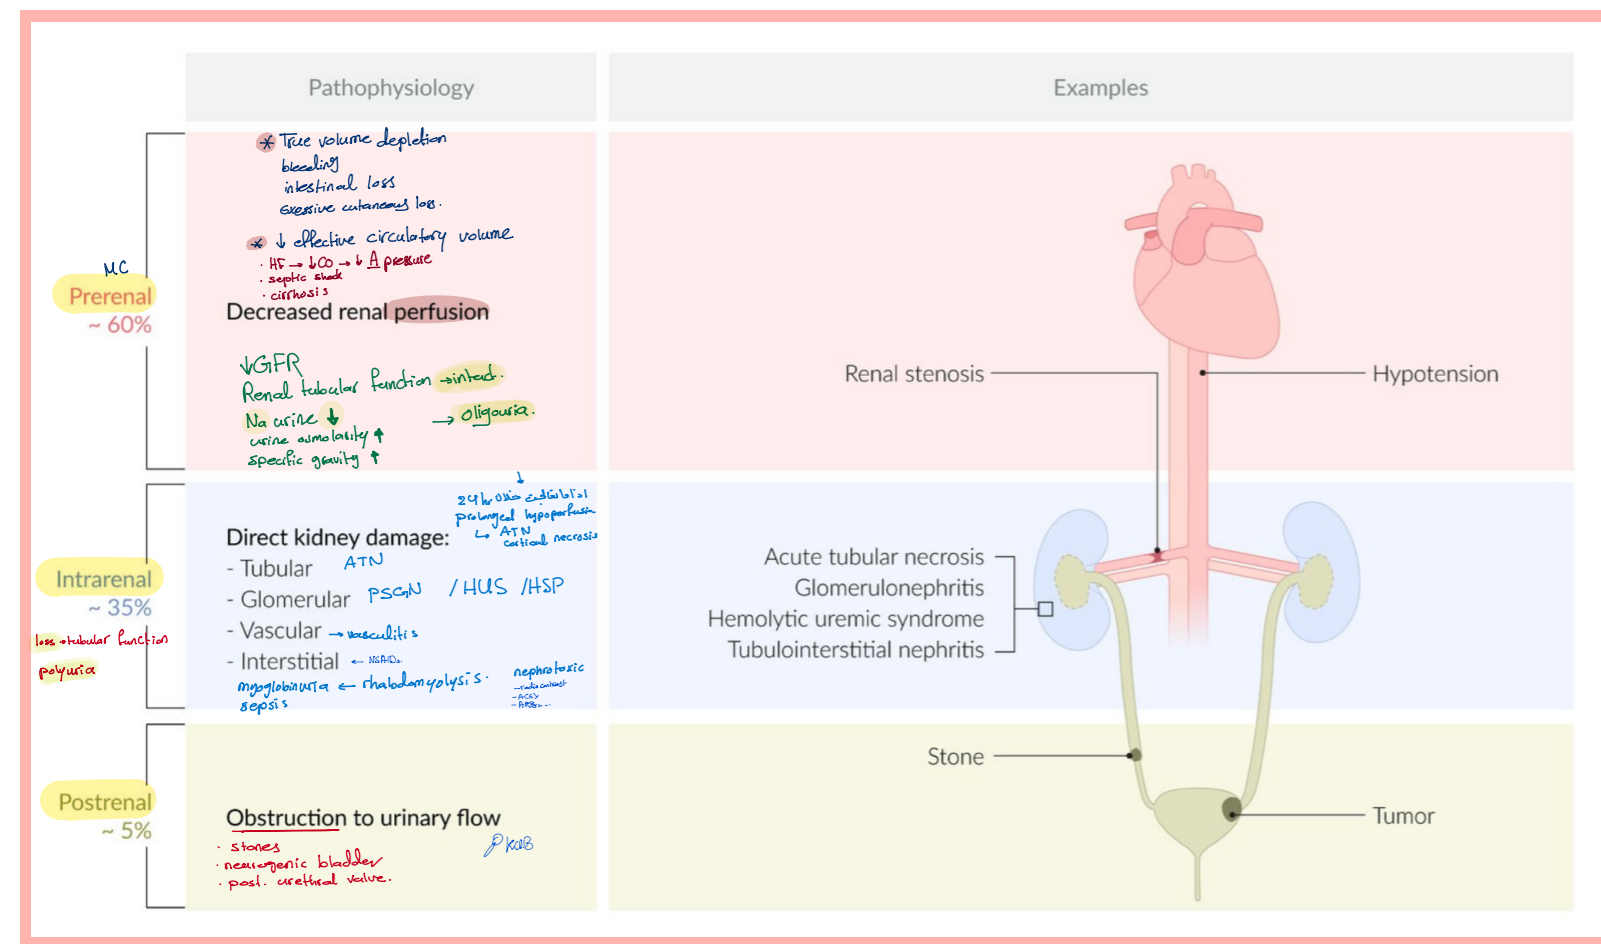 Pathophysiology
Examples
* True volume depletion
bleeding
intestinal loss
Exessive cutaneous loss.
* ↓ effective circulatory volume
· HF → ↓CO → ↓ A pressure
· septic shock
· cirrhosis
MC
Prerenal
~ 60%
Decreased renal perfusion
↓GFR
Renal tubular function → intact.
Na urine ↓ → oligouria.
urine osmolarity ↑
specific gravity ↑
Renal stenosis
Hypotension
↓
24hr
prolonged hypoperfusion
↳ ATN
cortical necrosis
Intrarenal
~ 35%
loss → tubular function
polyuria
Direct kidney damage:
- Tubular ATN
- Glomerular PSGN / HUS / HSP
- Vascular → vasculitis
- Interstitial ← NSAIDs.
myoglobinuria ← rhabdomyolysis.
sepsis
nephrotoxic
- radiocontrast
- ACEI
Acute tubular necrosis
Glomerulonephritis
Hemolytic uremic syndrome
Tubulointerstitial nephritis
Postrenal
~ 5%
Obstruction to urinary flow
· stones
· neurogenic bladder
· post. urethral valve.
KUB
Stone
Tumor